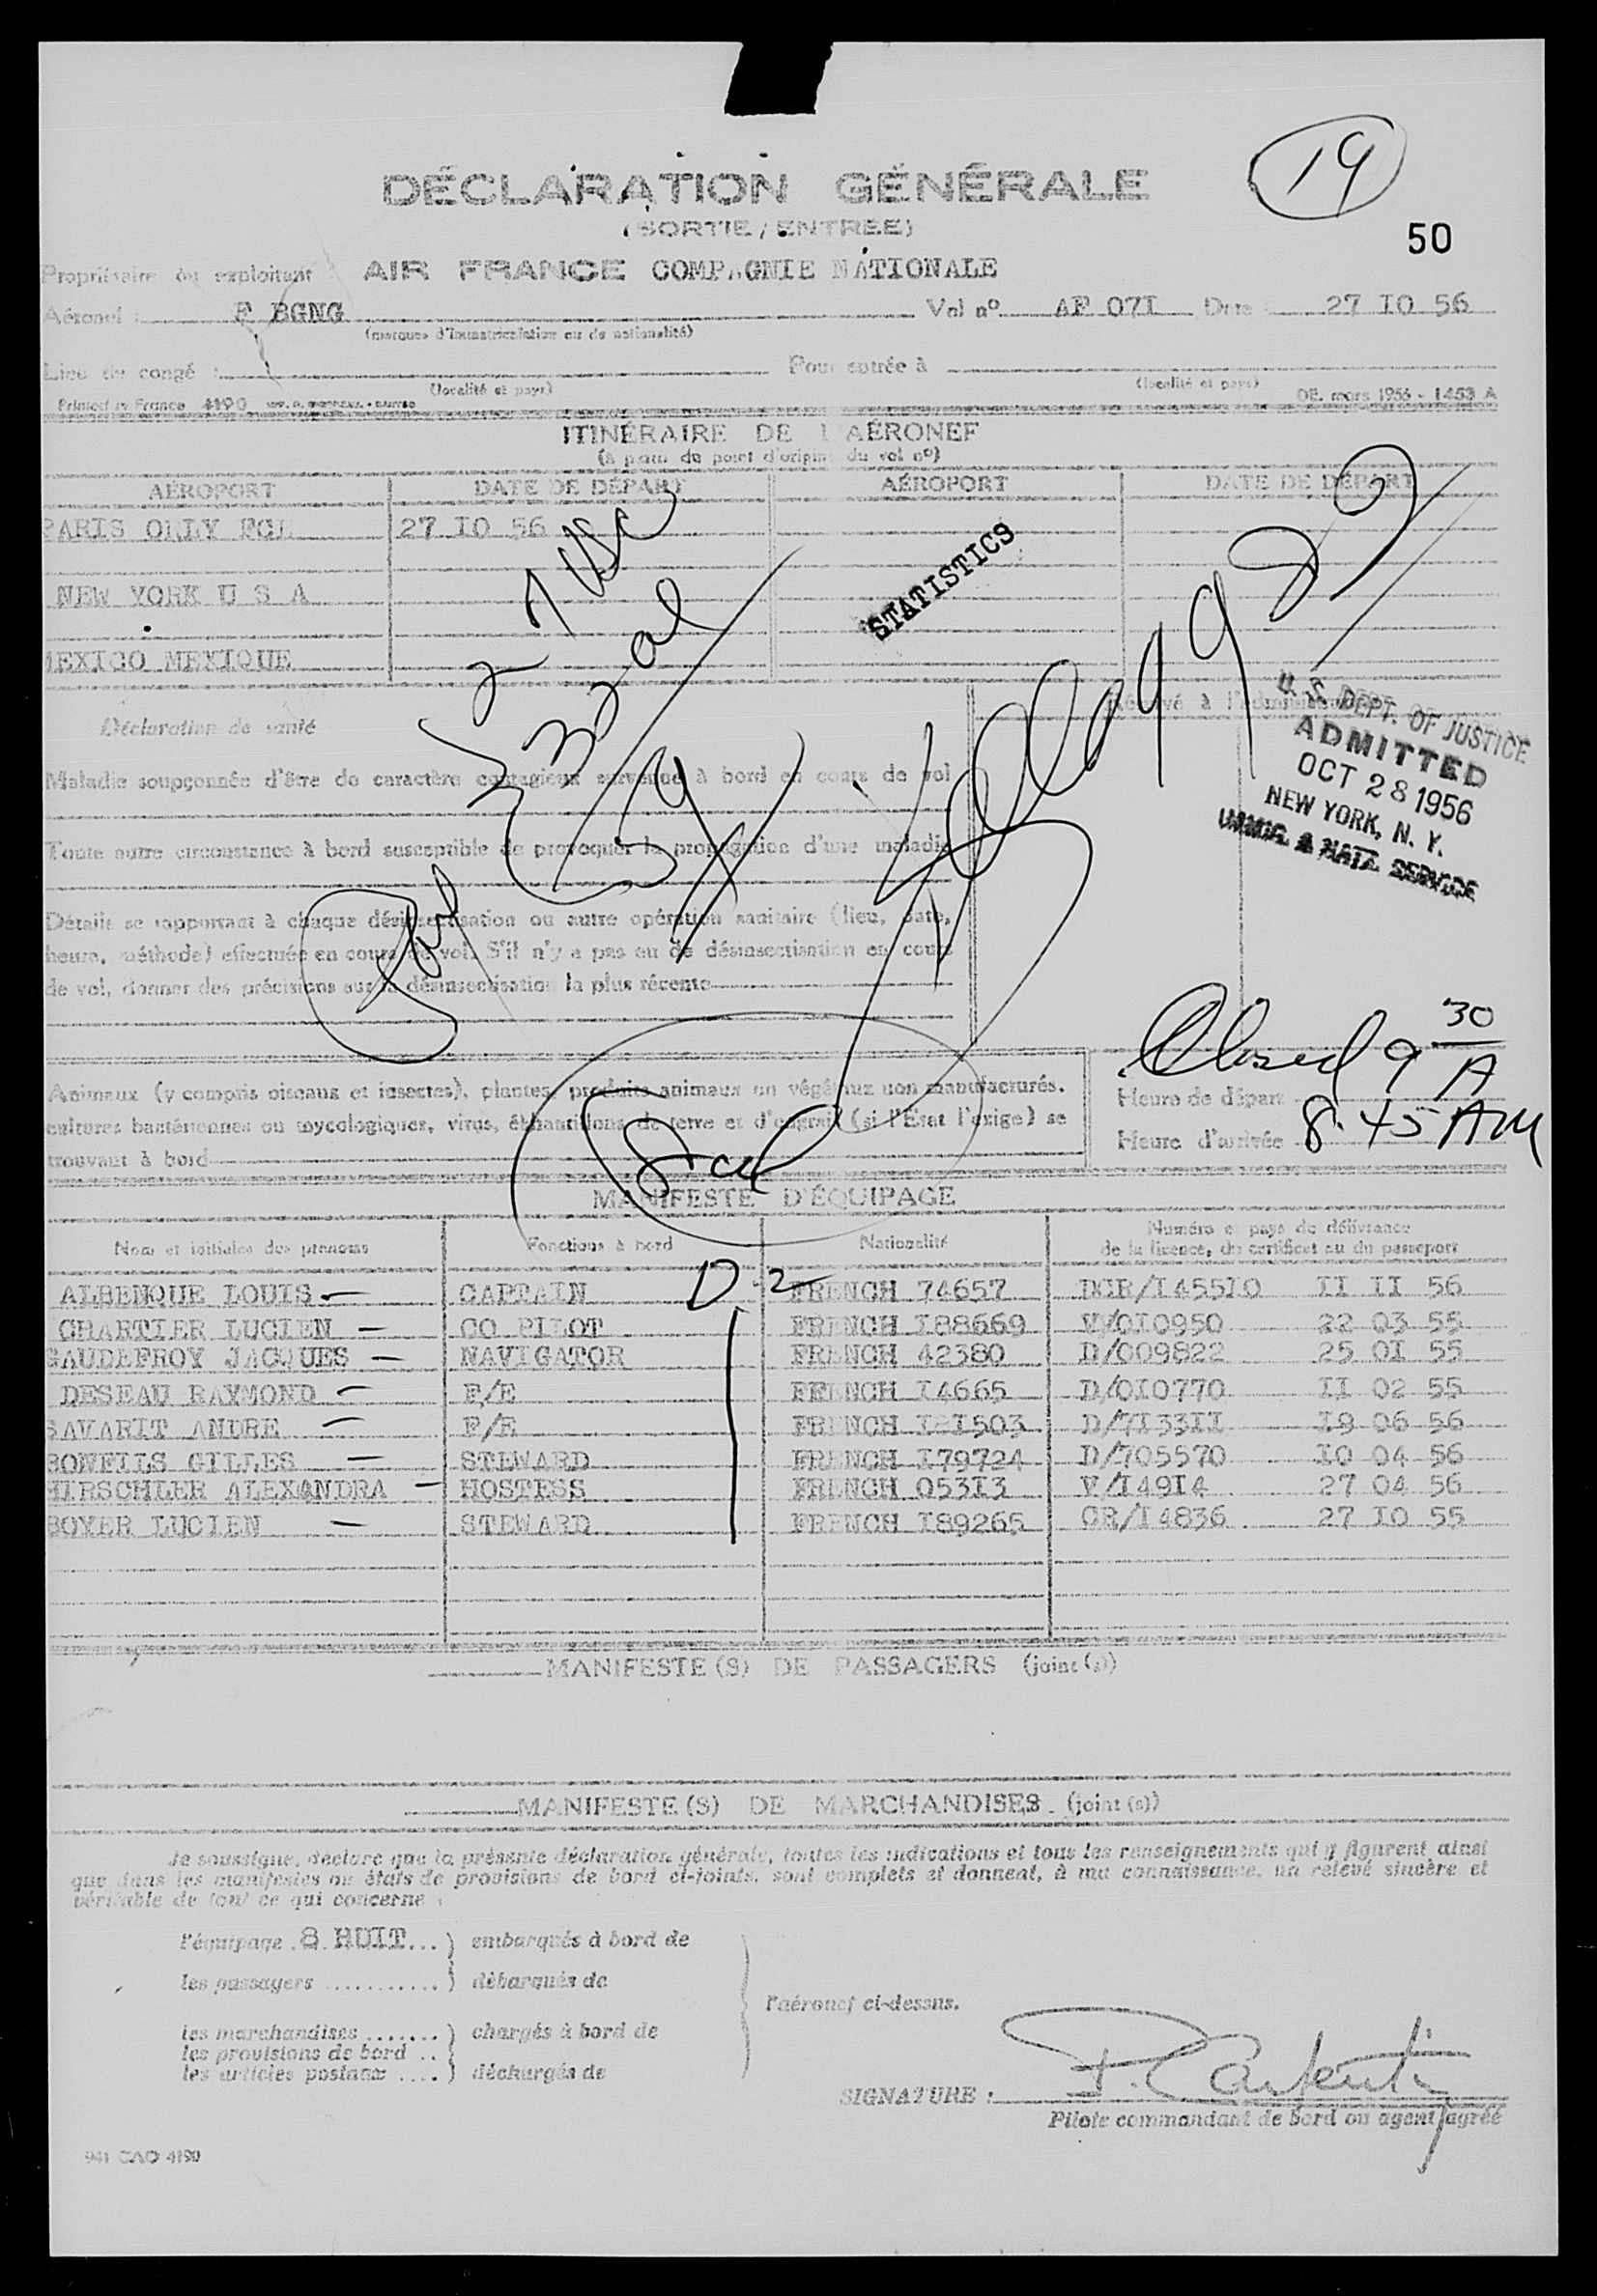 19
DÉCLARATION GÉNÉRALE
(SORTIE / ENTRÉE)
50
Propriétaire ou exploitant AIR FRANCE COMPAGNIE NATIONALE
Aéronef : F BGNG Vol nº AF 071 Date : 27 IO 56
(marques d'immatriculation ou de nationalité)
Lieu du congé : Pour entrée à
(localité et pays) (localité et pays)
Printed in France 4190 DE. mars 1956 - 1453 A
ITINÉRAIRE DE L'AÉRONEF
(à partir du point d'origine du vol nº)
AÉROPORT DATE DE DÉPART AÉROPORT DATE DE DÉPART
PARIS ORLY 27 IO 56
NEW YORK U S A
MEXICO MEXIQUE
STATISTICS
Déclaration de santé
Réservé à l'administration
U. S. DEPT. OF JUSTICE
ADMITTED
OCT 28 1956
NEW YORK, N. Y.
IMMIG. & NATZ. SERVICE
Maladie soupçonnée d'être de caractère contagieux survenue à bord en cours de vol
Toute autre circonstance à bord susceptible de provoquer la propagation d'une maladie
Détails se rapportant à chaque désinsectisation ou autre opération sanitaire (lieu, date,
heure, méthode) effectuée en cours de vol. S'il n'y a pas eu de désinsectisation en cours
de vol, donner des précisions sur la désinsectisation la plus récente
Closed 9 30 A
Animaux (y compris oiseaux et insectes), plantes, produits animaux ou végétaux non manufacturés.
cultures bactériennes ou mycologiques, virus, échantillons de terre et d'engrais (si l'État l'exige) se
trouvant à bord
Heure de départ
Heure d'arrivée 8.45 AM
MANIFESTE D'ÉQUIPAGE
Nom et initiales des prénoms Fonctions à bord Nationalité Numéro et pays de délivrance
de la licence, du certificat ou du passeport
D-2
ALBENQUE LOUIS - CAPTAIN FRENCH 74657 DGR/I455IO II II 56
CHARTIER LUCIEN - CO PILOT FRENCH I88669 V/OI0950 22 03 55
GAUDEFROY JACQUES - NAVIGATOR FRENCH 42380 D/009822 25 OI 55
DESEAU RAYMOND - F/E FRENCH I4665 D/OI0770 II 02 55
SAVARIT ANDRE - F/E FRENCH I8I503 D/7I33II I9 06 56
BONFILS GILLES - STEWARD FRENCH I79724 D/705570 IO 04 56
HIRSCHLER ALEXANDRA - HOSTESS FRENCH 053I3 V/I49I4 27 04 56
BOYER LUCIEN - STEWARD FRENCH I89265 CR/I4836 27 IO 55
MANIFESTE (S) DE PASSAGERS (joint (s))
MANIFESTE (S) DE MARCHANDISES (joint (s))
Je soussigné, déclare que la présente déclaration générale, toutes les indications et tous les renseignements qui y figurent ainsi
que dans les manifestes ou états de provisions de bord ci-joints, sont complets et donnent, à ma connaissance, un relevé sincère et
véritable de tout ce qui concerne :
l'équipage . 8 HUIT ... ) embarqués à bord de
les passagers ........... ) débarqués de
l'aéronef ci-dessus.
les marchandises ....... ) chargés à bord de
les provisions de bord ..
les articles postaux .... ) déchargés de
SIGNATURE :
Pilote commandant de bord ou agent agréé
941 CAO 4190